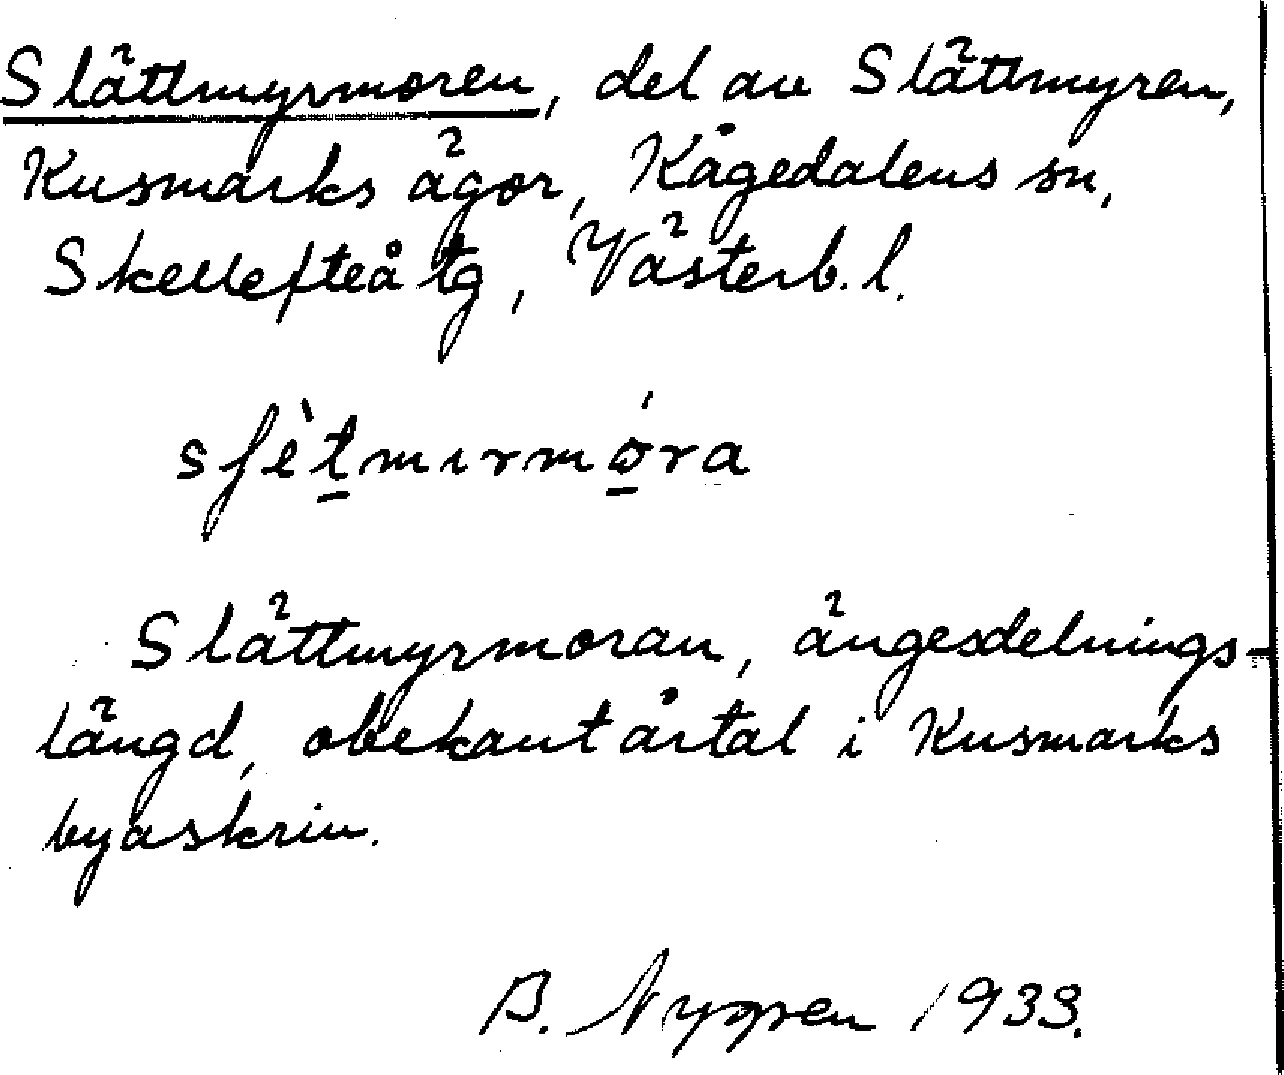 Slättmyrmoren, del av Slättmyren,
Kusmarks ägor, Kågedalens sn,
Skellefteå tg, Västerb. l.
Slättmyrmoran, ängesdelnings-
längd, obekant årtal i Kusmarks
byaskrin.
B. Nygren 1933.